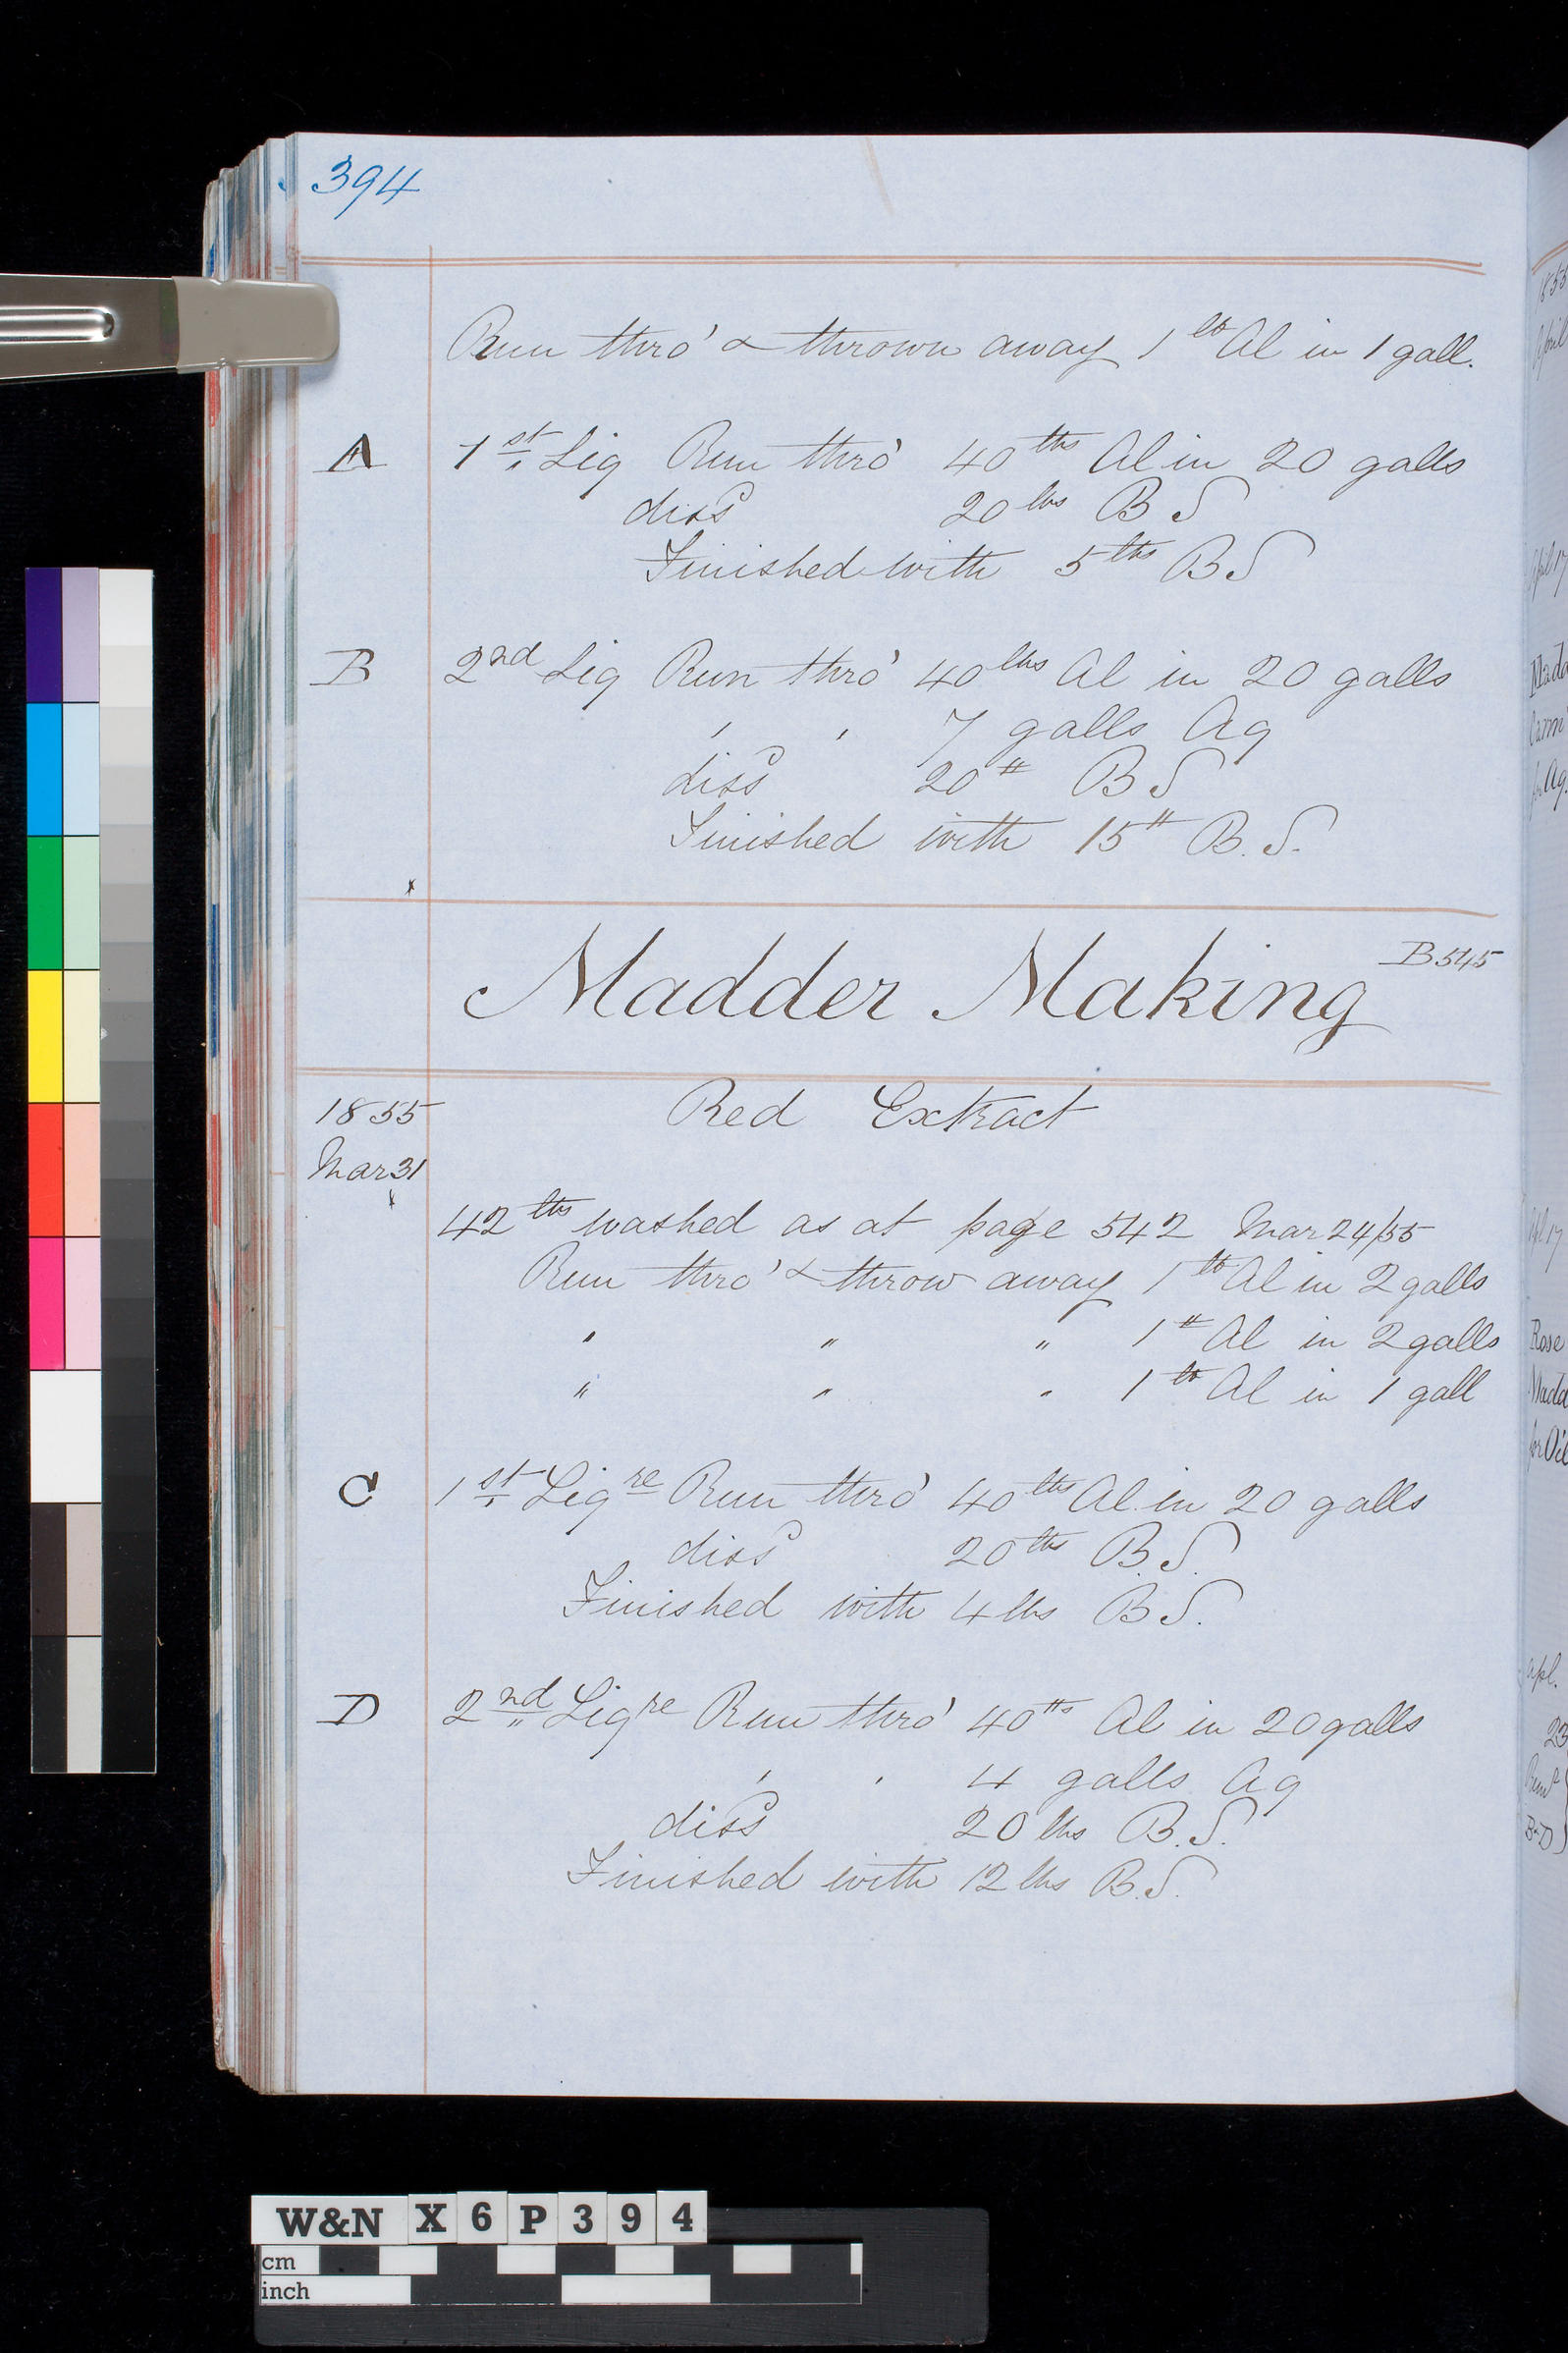 394
Run thro' & thrown away 1 lb Al in 1 gall.
A 1st Liq Run thro' 40 lbs Al in 20 galls
dissd 20 lbs B S
Finished with 5 lbs B S
B 2nd Liq Run thro' 40 lbs Al in 20 galls
" " 7 galls Aq
dissd 20 # B S
Finished with 15 # B. S.
x
Madder Making B545
1855 Red Extract
Mar 31
x
42 lbs washed as at page 542 Mar 24/55
Run thro' & throw away 1 lb Al in 2 galls
" " " 1 # Al in 2 galls
" " " 1 lb Al in 1 gall
C 1st Liqre Run thro' 40 lbs Al in 20 galls
dissd 20 lbs B. S.
Finished with 4 lbs B S.
D 2nd Liqre Run thro' 40 lbs Al in 20 galls
" " 4 galls Aq
dissd 20 lbs B. S.
Finished with 12 lbs B. S.
1855
April
Rose
for Oil
23
W&N X 6 P 3 9 4
cm
inch